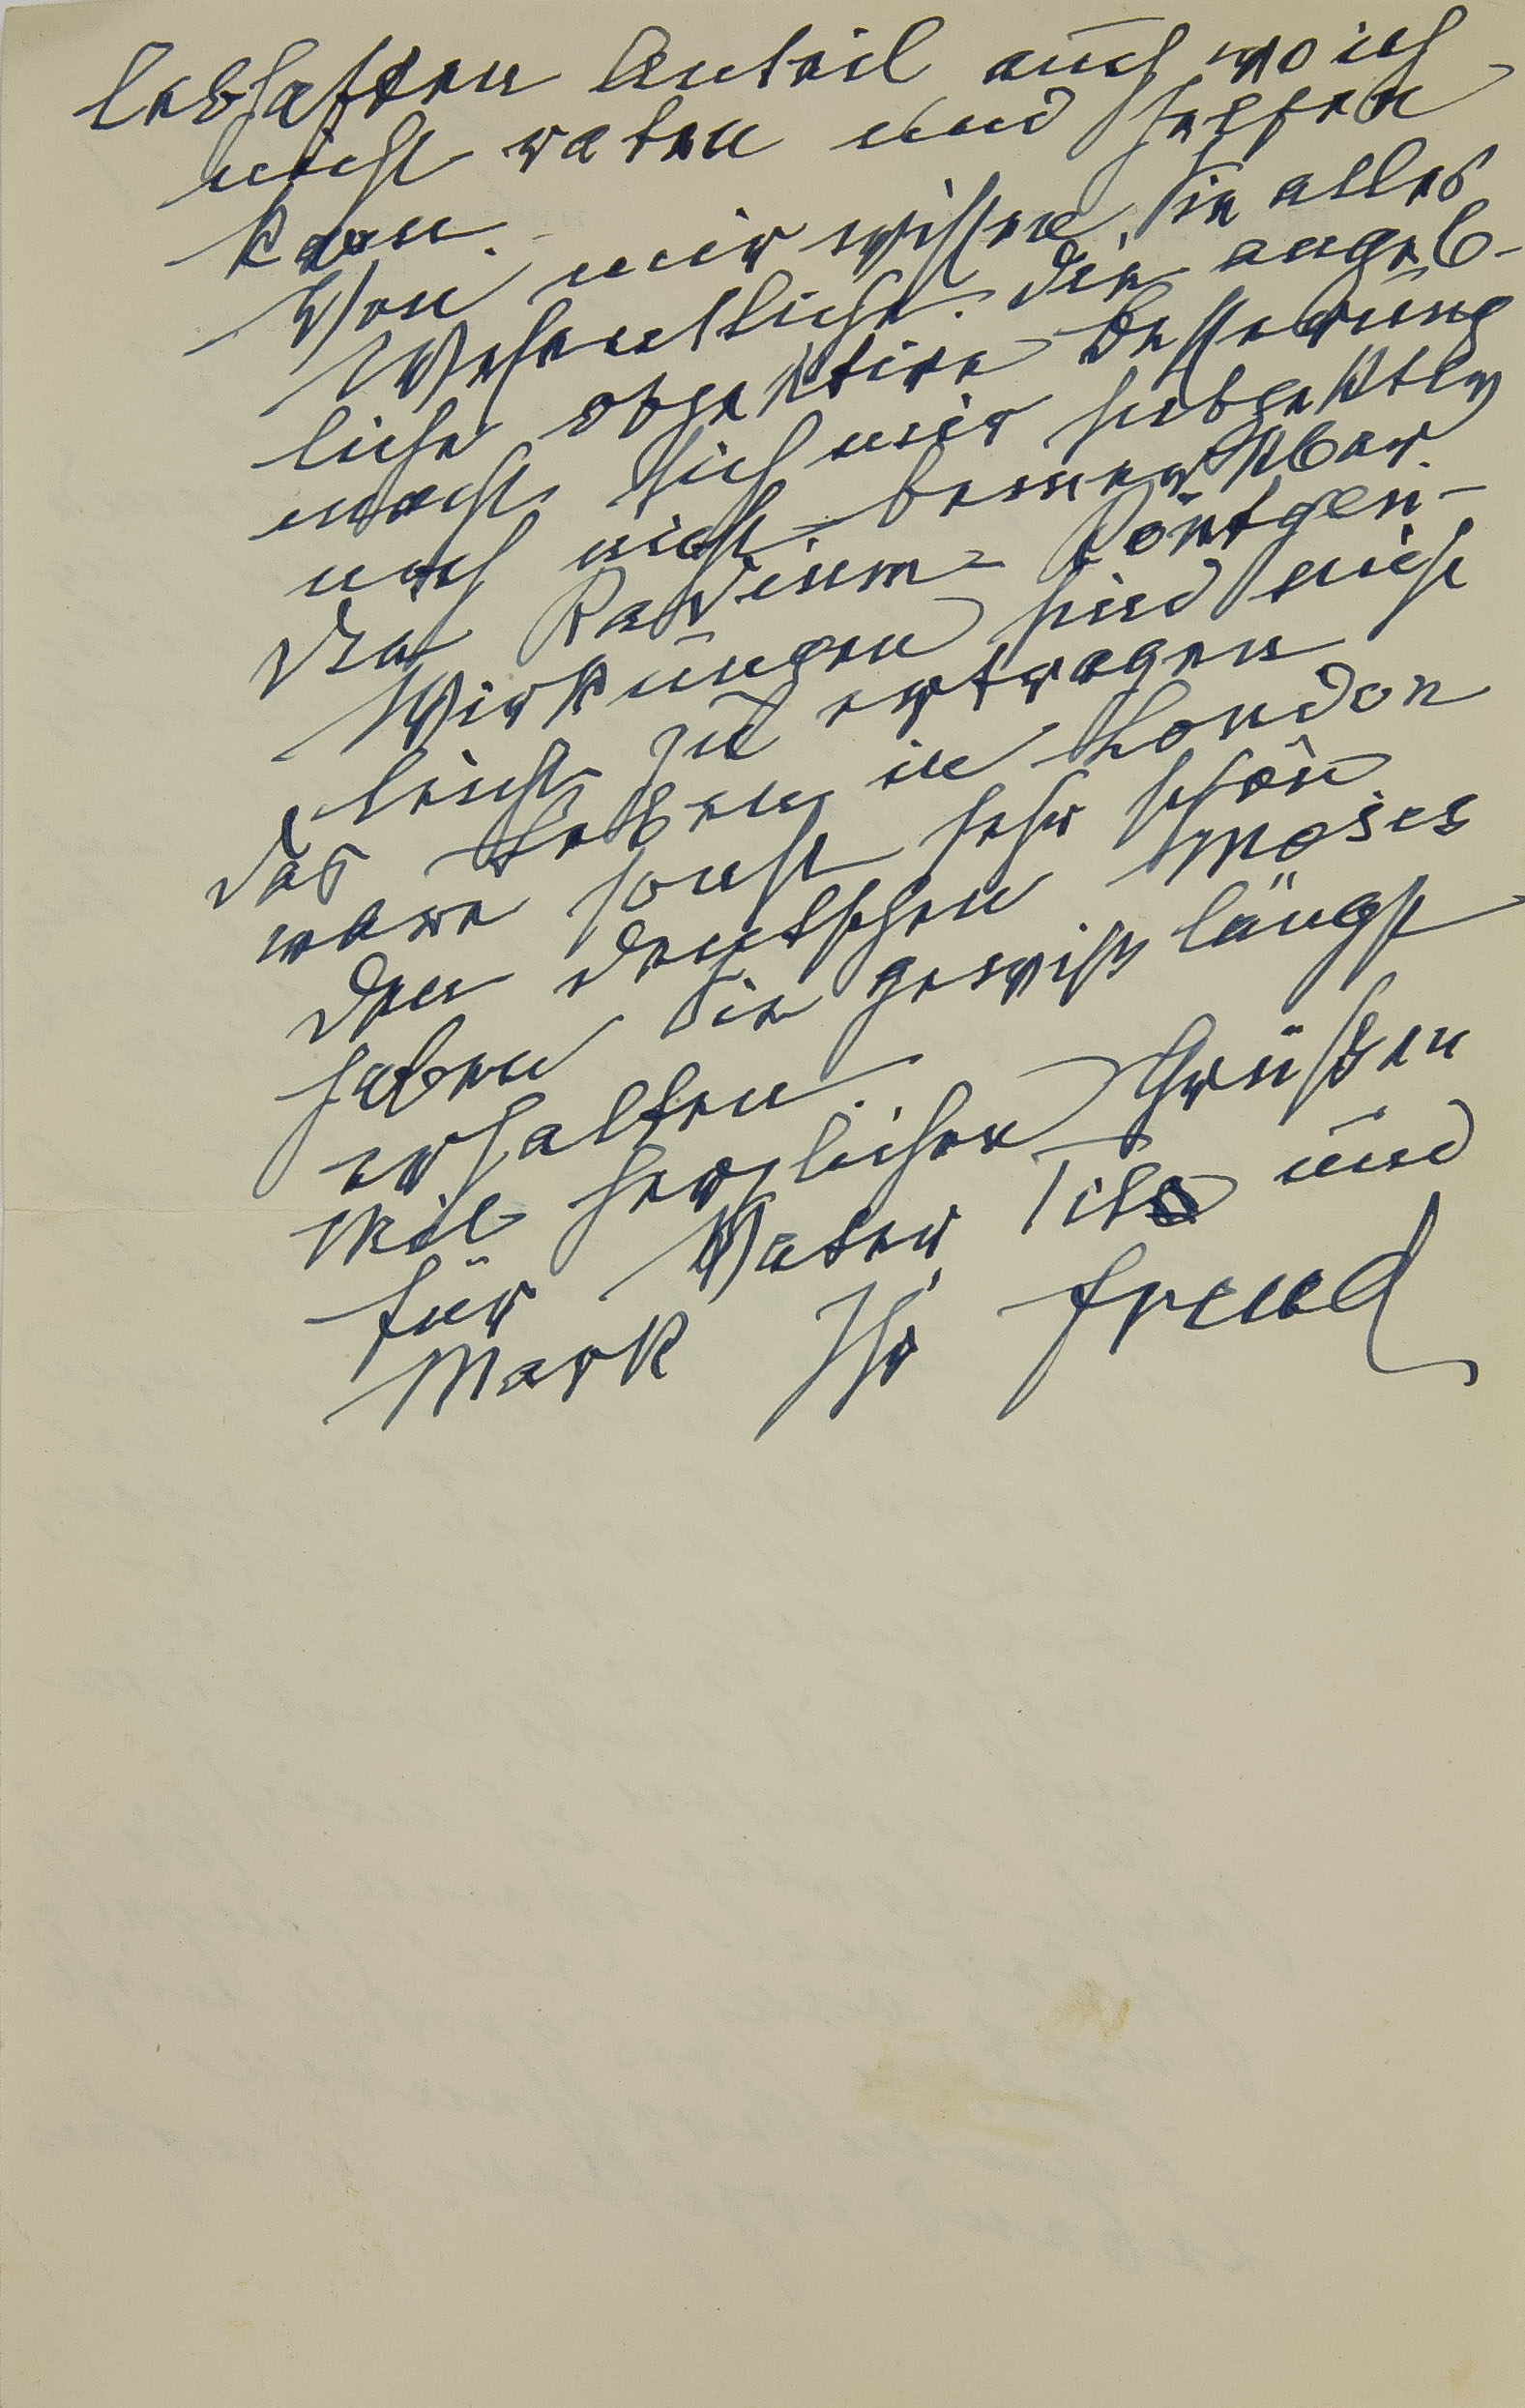 lebhaften Anteil auch wo ich
nicht raten und helfen
kann.
Von mir wissen Sie alles
Wesentliche. Die angeb-
liche objektive Besserung
macht sich mir subjektiv
noch nicht bemerkbar.
Die Radium-Röntgen-
Wirkungen sind nicht
leicht zu ertragen
Das Leben in London
wäre sonst sehr schön
Den deutschen Moses
haben Sie gewiß längst
erhalten.
Mit herzlichen Grüßen
für Vater, Tito und
Mark Ihr Freud